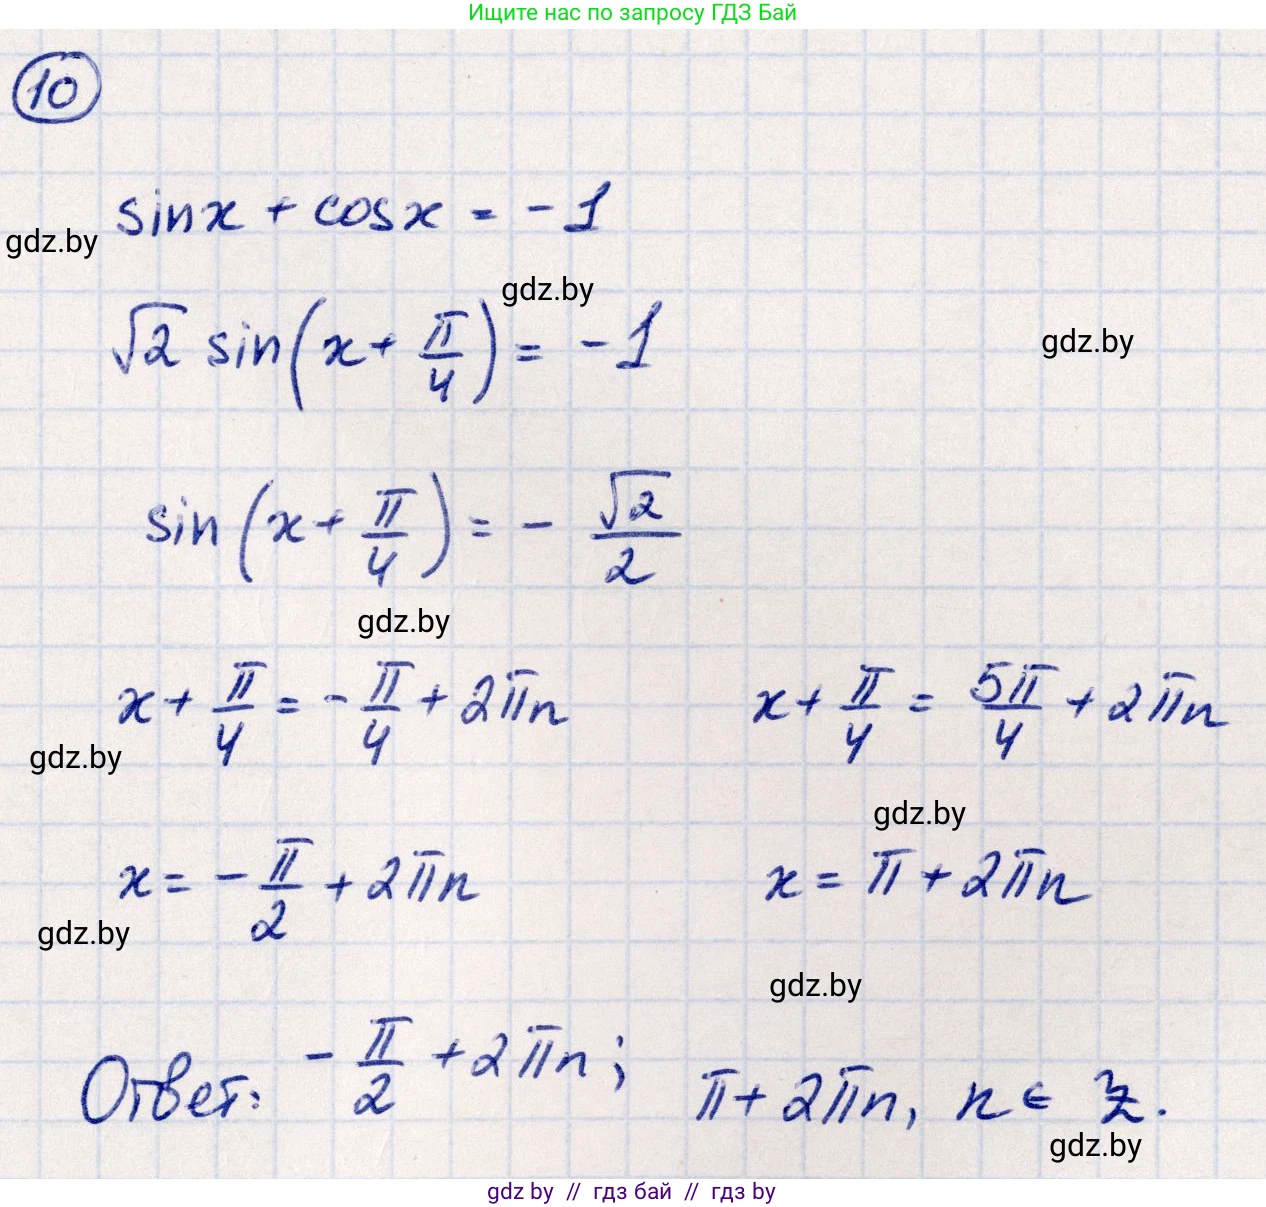 Ищите нас по запросу ГДЗ Бай
10
sin x + cos x = -1
gdz.by
gdz.by
√2 sin(x + π/4) = -1
gdz.by
sin(x + π/4) = - √2/2
gdz.by
x + π/4 = - π/4 + 2πn
x + π/4 = 5π/4 + 2πn
gdz.by
gdz.by
x = - π/2 + 2πn
x = π + 2πn
gdz.by
gdz.by
Ответ: - π/2 + 2πn; π + 2πn, n ∈ Z.
gdz.by
gdz by // гдз бай // гдз by